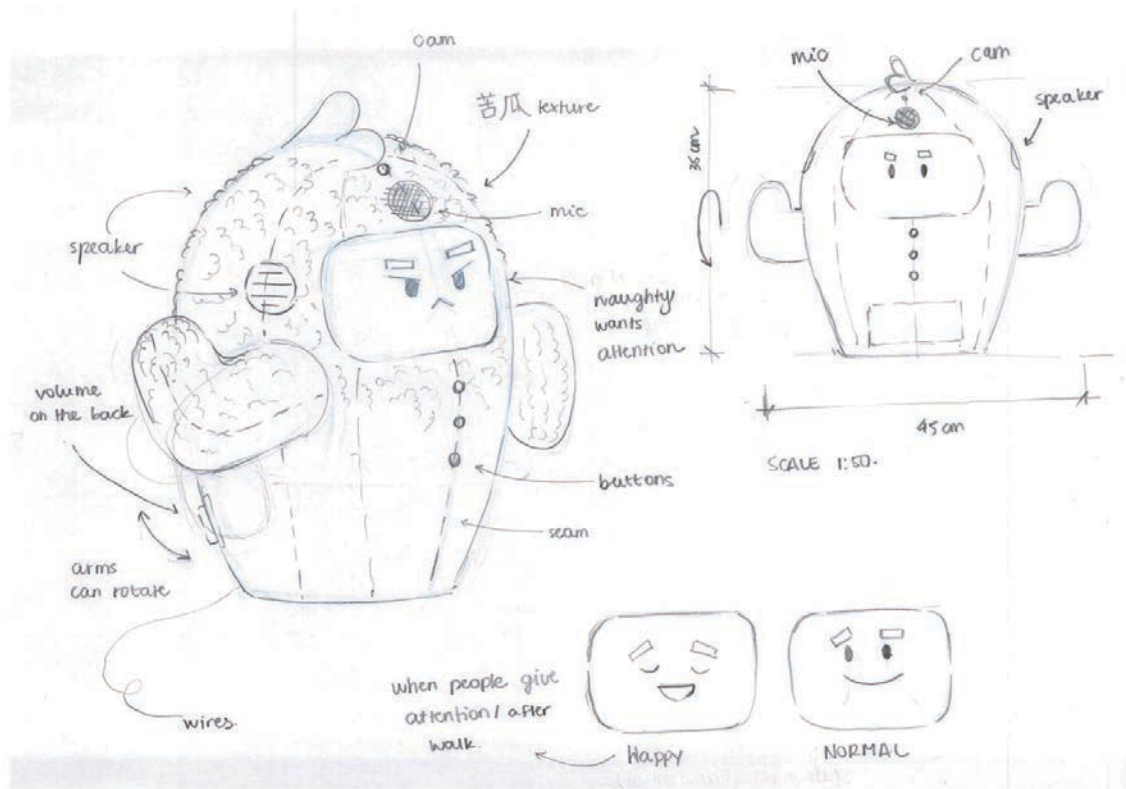 cam
苦瓜 texture
mic
speaker
naughty
wants
attention
volume
on the back
buttons
seam
arms
can rotate
wires
mic
cam
speaker
45 cm
SCALE 1:50.
when people give
attention / after
walk.
HAPPY
NORMAL